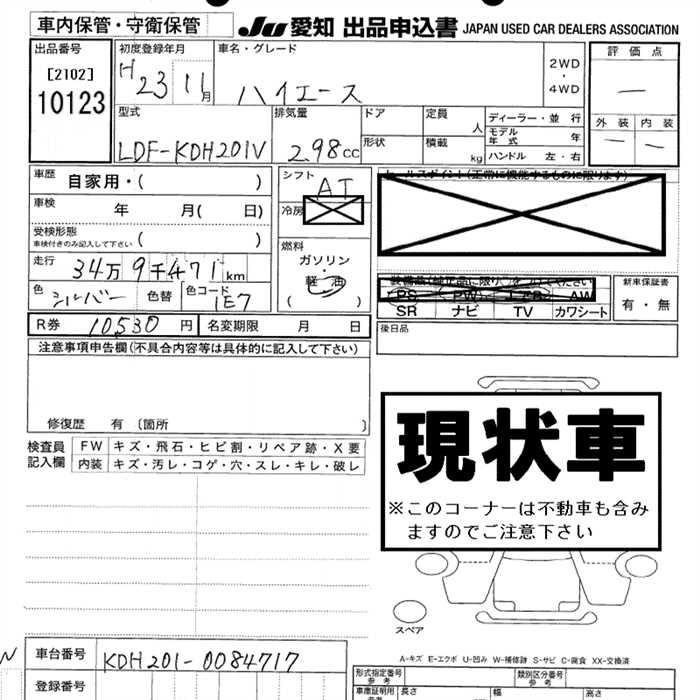 車内保管・守衛保管
JU 愛知 出品申込書 JAPAN USED CAR DEALERS ASSOCIATION
出品番号
[2102]
10123
初度登録年月
H23 11月
車名・グレード
ハイエース
2WD
・
4WD
評価点
—
外装 内装
— —
型式
LDF-KDH201V
排気量
2.98cc
ドア
形状
定員
人
積載
kg
ディーラー・並行
モデル年式 年
ハンドル 左・右
車歴
自家用・( )
車検
年 月( 日)
受検形態
車検付きのみ記入して下さい ( )
走行
34万9千471km
色
シルバー 色替
色コード
1E7
シフト
AT
冷房
燃料
ガソリン・
軽油
( )
セールスポイント(正常に機能するものに限ります)
装備品(純正品に限り)を○で囲んでください
PS PW エアB AW
SR ナビ TV カワシート
新車保証書
有・無
後日品
R券 10530円 名変期限 月 日
注意事項申告欄(不具合内容等は具体的に記入して下さい)
修復歴 有〔箇所 〕
検査員
記入欄
FW キズ・飛石・ヒビ割・リペア跡・X要
内装 キズ・汚レ・コゲ・穴・スレ・キレ・破レ
現状車
※このコーナーは不動車も含み
ますのでご注意下さい
スペア
A-キズ E-エクボ U-凹み W-補修跡 S-サビ C-腐食 XX-交換済
N
車台番号 KDH201-0084717
登録番号
形式指定番号
参考
類別区分番号
参考
車庫証明用
参考
長さ 幅 高さ